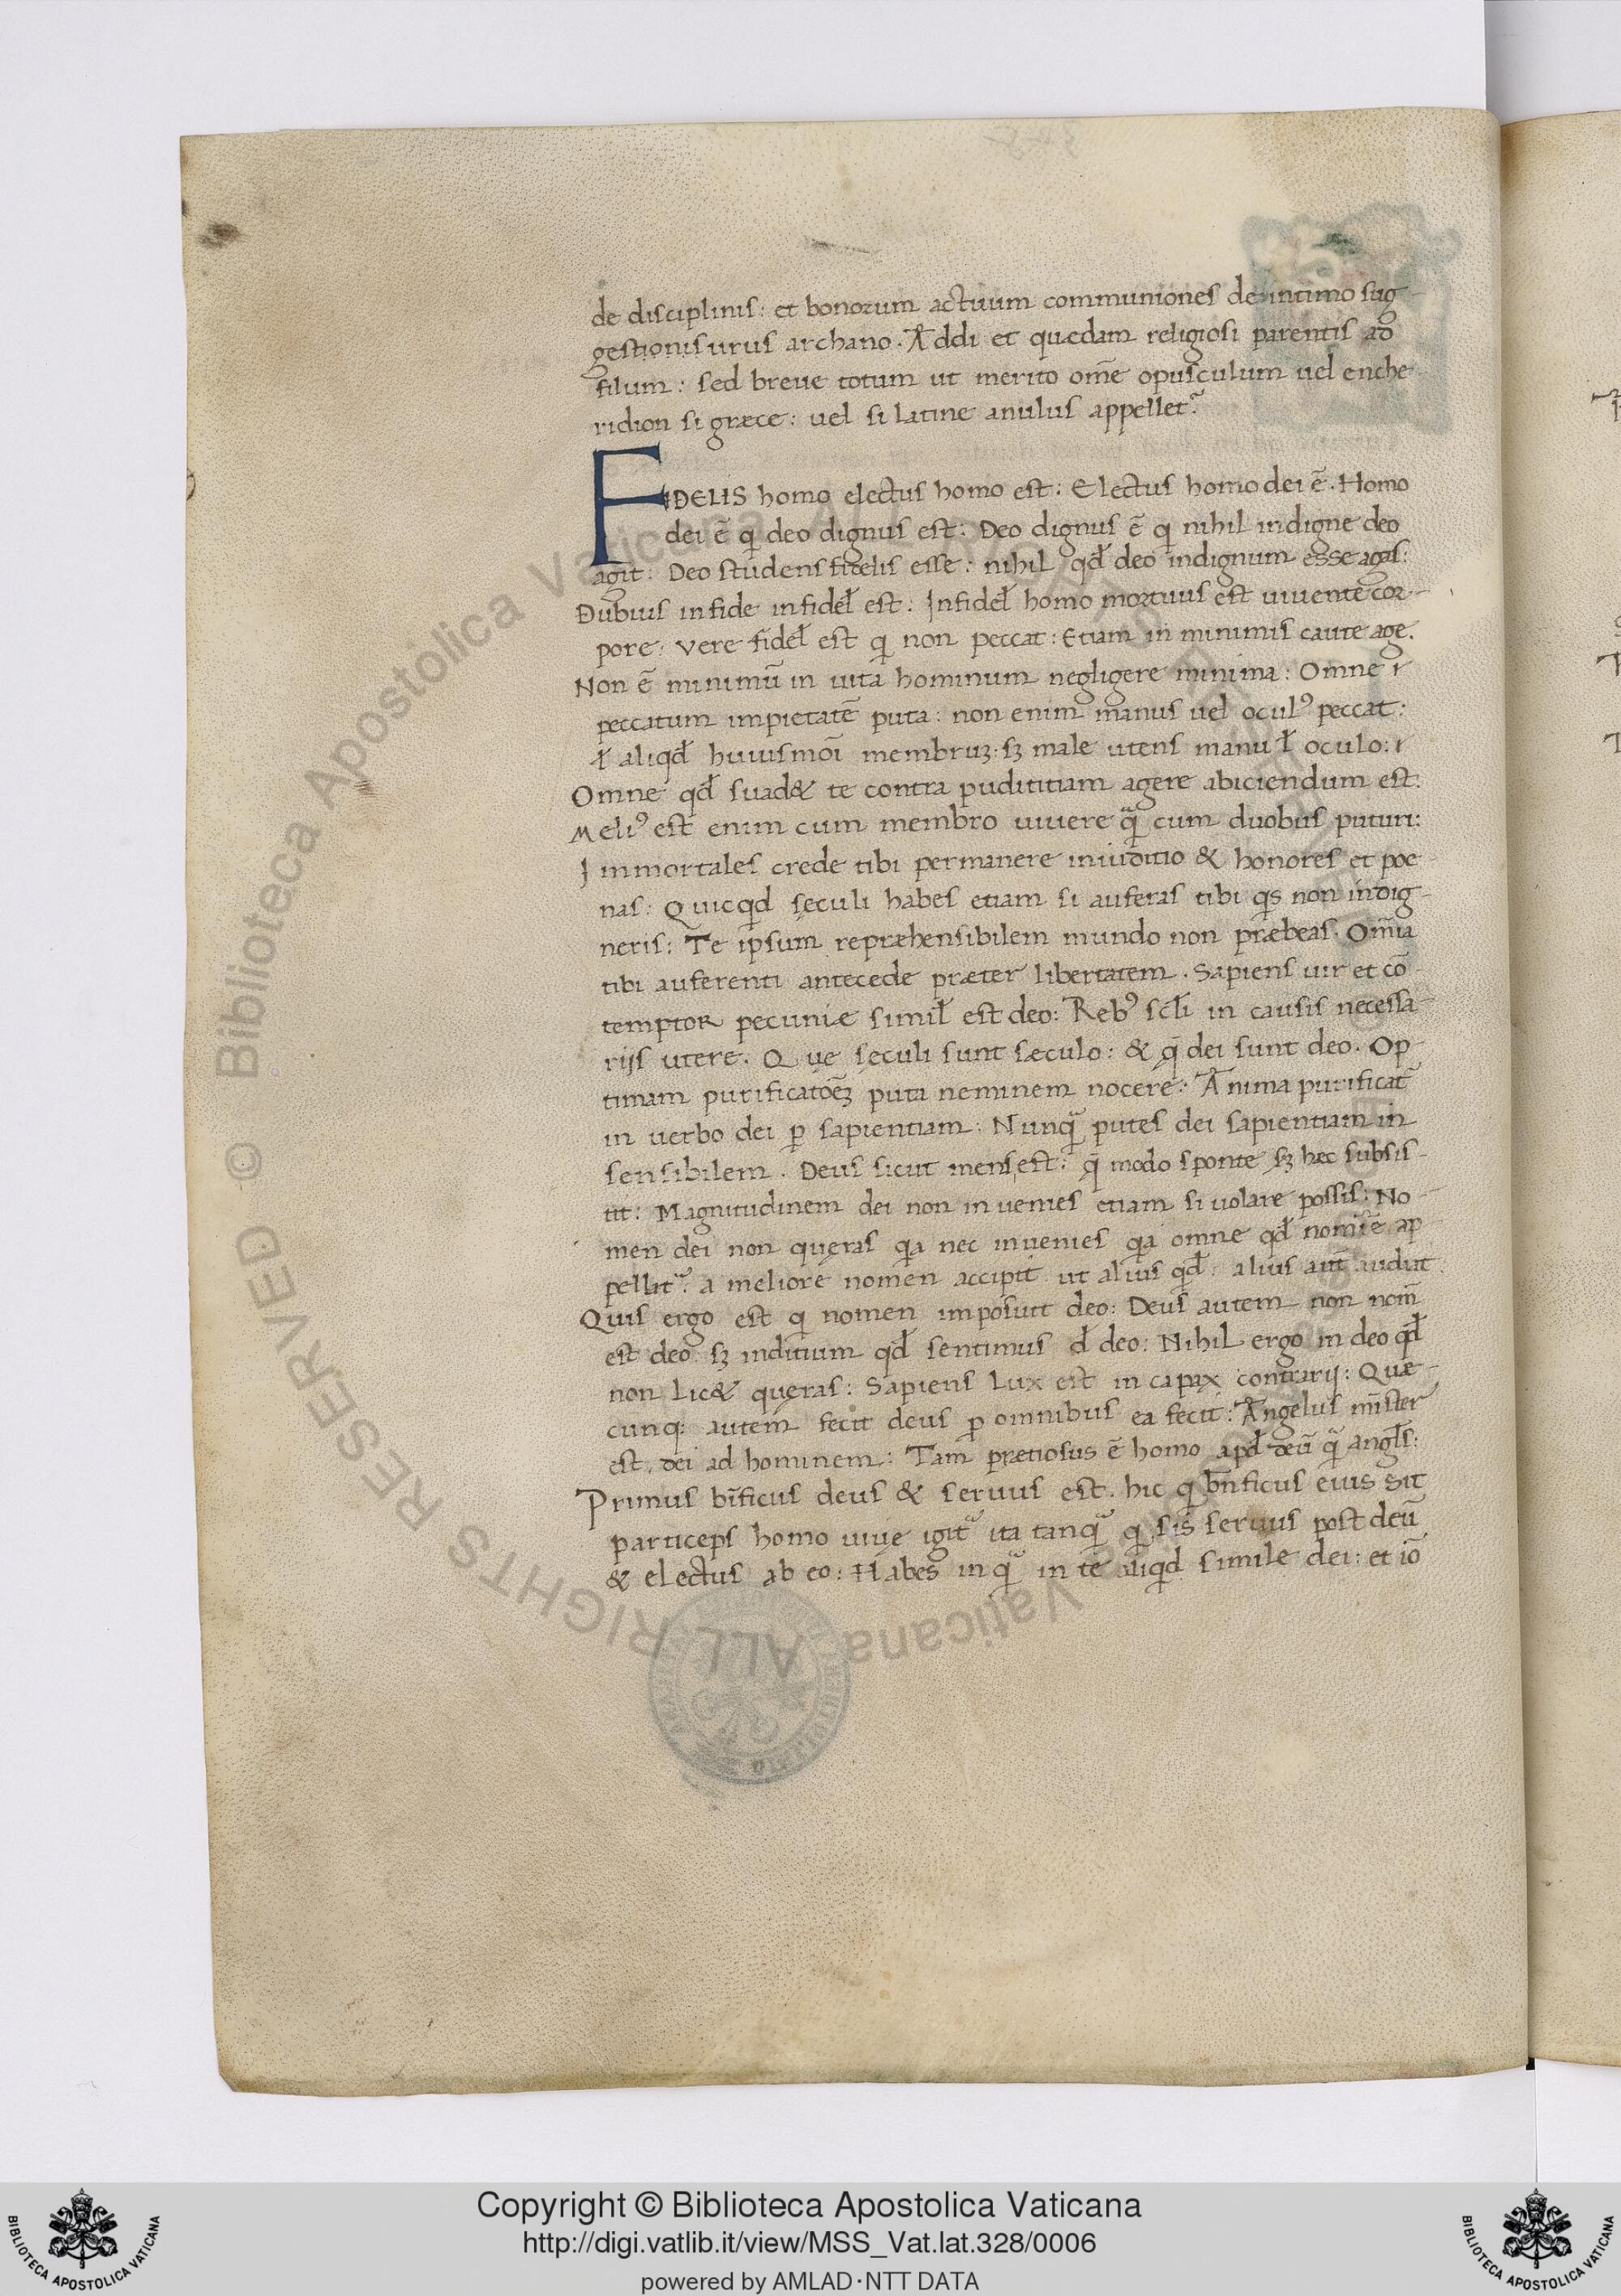 de disciplinis: et bonorum actuum communiones de intimo sug-
gestionis urus archano. Addi et quædam religiosi parentis ad
filum: sed breue totum ut merito om̄e opusculum uel enche-
ridion si græce: uel si latine anulus appellet᷑.
FIDELIS homo electus homo est: Electus homo dei ē. Homo
dei ē qͥ deo dignus est: Deo dignus ē qͥ nihil indigne deo
agit: Deo studens fidelis esse: nihil qđ deo indignum esse agas:
Dubius in fide infideł est: Infideł homo mortuus est uiuente cor-
pore: vere fideł est qͥ non peccat: Etiam in minimis caute age.
Non ē minimū in uita hominum negligere minima: Omne
peccatum impietatē puta: non enim manus uel oculꝰ peccat:
ł aliqđ huiusmōi membruꝫ: sꝫ male utens manu ł oculo:
Omne qđ suad& te contra pudititiam agere abiciendum est.
Meliꝰ est enim cum membro uiuere qᷓ cum duobus puturi:
Immortales crede tibi permanere in iuditio & honores et poe-
nas: Quicqͥd sęculi habes etiam si auferas tibi qͥs non indig-
neris: Te ipsum repræhensibilem mundo non præbeas. Om̄ia
tibi auferenti antecede præter libertatem. Sapiens uir et cō-
temptor pecuniæ simił est deo: Rebꝰ scłi in causis necessa-
rijs utere. Quę sęculi sunt sæculo: & q̄ dei sunt deo. Op-
timam purificatōēꝫ puta neminem nocere: Anima purificat᷑
in uerbo dei ꝑ sapientiam: Nunqᷓ putes dei sapientiam in
sensibilem. Deus sicut mens est: q̄ modo sponte sꝫ hęc subsis-
tit: Magnitudinem dei non inuenies etiam si uolare possis: No-
men dei non quęras qͥa nec inuenies qͥa omne qđ nomīe ap-
pellat᷑ a meliore nomen accipit ut alius qđ: alius aut̄ audiat
Quis ergo est qͥ nomen imposuit deo: Deus autem non nom̄
est deo sꝫ inditium qđ sentimus đ deo: Nihil ergo in deo qđ
non lic& quęras: Sapiens lux est incapax contrarij: Quæ-
cunqꝫ autem fecit deus ꝑ omnibus ea fecit: Angelus mīster
est dei ad hominem: Tam prætiosus ē homo apđ deū qᷓ angłs:
Primus bn̄ficus deus & seruus est. hic qͥ bn̄ficus eius sit
particeps homo uiue igit᷑ ita tanqᷓ qͥ sis seruus post deū
& electus ab eo: Habes inqᷓ in te aliqͥd simile dei: et iō
Copyright © Biblioteca Apostolica Vaticana
http://digi.vatlib.it/view/MSS_Vat.lat.328/0006
powered by AMLAD·NTT DATA
BIBLIOTECA APOSTOLICA VATICANA
BIBLIOTECA APOSTOLICA VATICANA